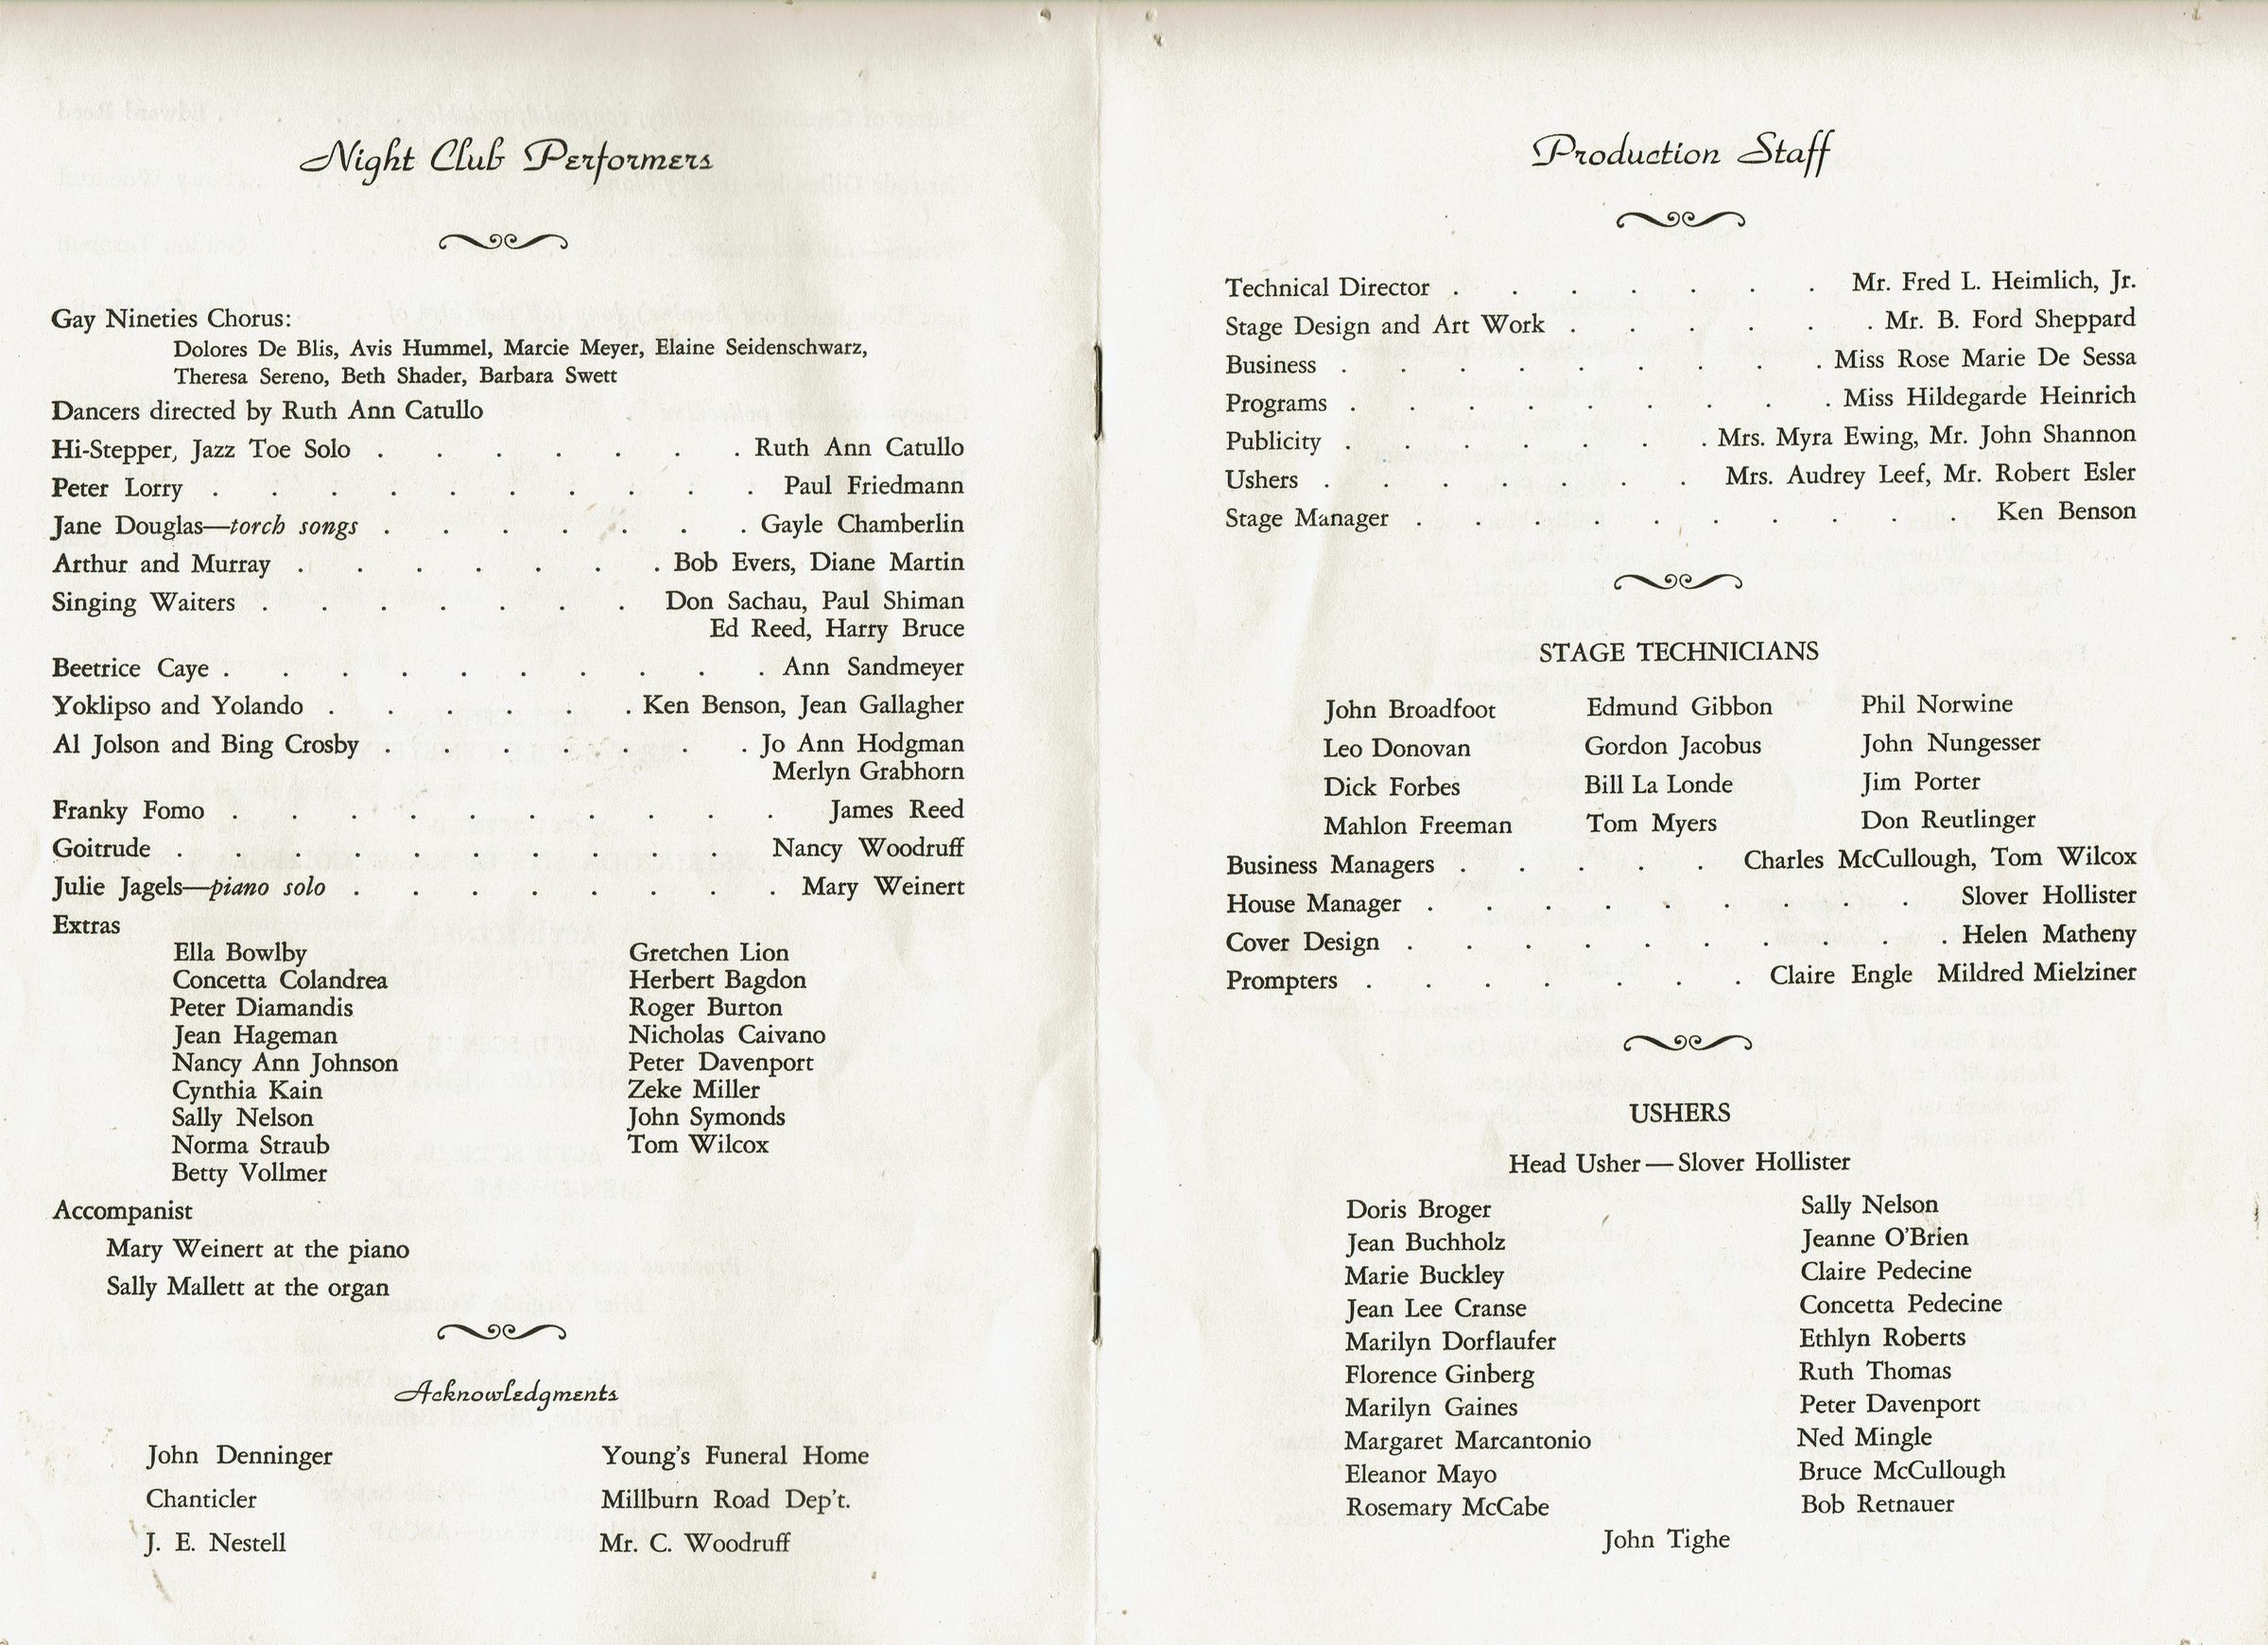 Night Club Performers
Gay Nineties Chorus:
Dolores De Blis, Avis Hummel, Marcie Meyer, Elaine Seidenschwarz,
Theresa Sereno, Beth Shader, Barbara Swett
Dancers directed by Ruth Ann Catullo
Hi-Stepper, Jazz Toe Solo . . . . . . . Ruth Ann Catullo
Peter Lorry . . . . . . . . . . Paul Friedmann
Jane Douglas—torch songs . . . . . . . Gayle Chamberlin
Arthur and Murray . . . . . . . Bob Evers, Diane Martin
Singing Waiters . . . . . . . Don Sachau, Paul Shiman
Ed Reed, Harry Bruce
Beetrice Caye . . . . . . . . . . Ann Sandmeyer
Yoklipso and Yolando . . . . . . Ken Benson, Jean Gallagher
Al Jolson and Bing Crosby . . . . . . . Jo Ann Hodgman
Merlyn Grabhorn
Franky Fomo . . . . . . . . . . James Reed
Goitrude . . . . . . . . . . Nancy Woodruff
Julie Jagels—piano solo . . . . . . . . Mary Weinert
Extras
Ella Bowlby
Concetta Colandrea
Peter Diamandis
Jean Hageman
Nancy Ann Johnson
Cynthia Kain
Sally Nelson
Norma Straub
Betty Vollmer
Gretchen Lion
Herbert Bagdon
Roger Burton
Nicholas Caivano
Peter Davenport
Zeke Miller
John Symonds
Tom Wilcox
Accompanist
Mary Weinert at the piano
Sally Mallett at the organ
Acknowledgments
John Denninger
Chanticler
J. E. Nestell
Young's Funeral Home
Millburn Road Dep't.
Mr. C. Woodruff
Production Staff
Technical Director . . . . . . . Mr. Fred L. Heimlich, Jr.
Stage Design and Art Work . . . . . . Mr. B. Ford Sheppard
Business . . . . . . . . . Miss Rose Marie De Sessa
Programs . . . . . . . . . Miss Hildegarde Heinrich
Publicity . . . . . . . Mrs. Myra Ewing, Mr. John Shannon
Ushers . . . . . . . Mrs. Audrey Leef, Mr. Robert Esler
Stage Manager . . . . . . . . . . Ken Benson
STAGE TECHNICIANS
John Broadfoot Edmund Gibbon Phil Norwine
Leo Donovan Gordon Jacobus John Nungesser
Dick Forbes Bill La Londe Jim Porter
Mahlon Freeman Tom Myers Don Reutlinger
Business Managers . . . . . Charles McCullough, Tom Wilcox
House Manager . . . . . . . . . Slover Hollister
Cover Design . . . . . . . . . . Helen Matheny
Prompters . . . . . . . Claire Engle Mildred Mielziner
USHERS
Head Usher — Slover Hollister
Doris Broger
Jean Buchholz
Marie Buckley
Jean Lee Cranse
Marilyn Dorflaufer
Florence Ginberg
Marilyn Gaines
Margaret Marcantonio
Eleanor Mayo
Rosemary McCabe
Sally Nelson
Jeanne O'Brien
Claire Pedecine
Concetta Pedecine
Ethlyn Roberts
Ruth Thomas
Peter Davenport
Ned Mingle
Bruce McCullough
Bob Retnauer
John Tighe